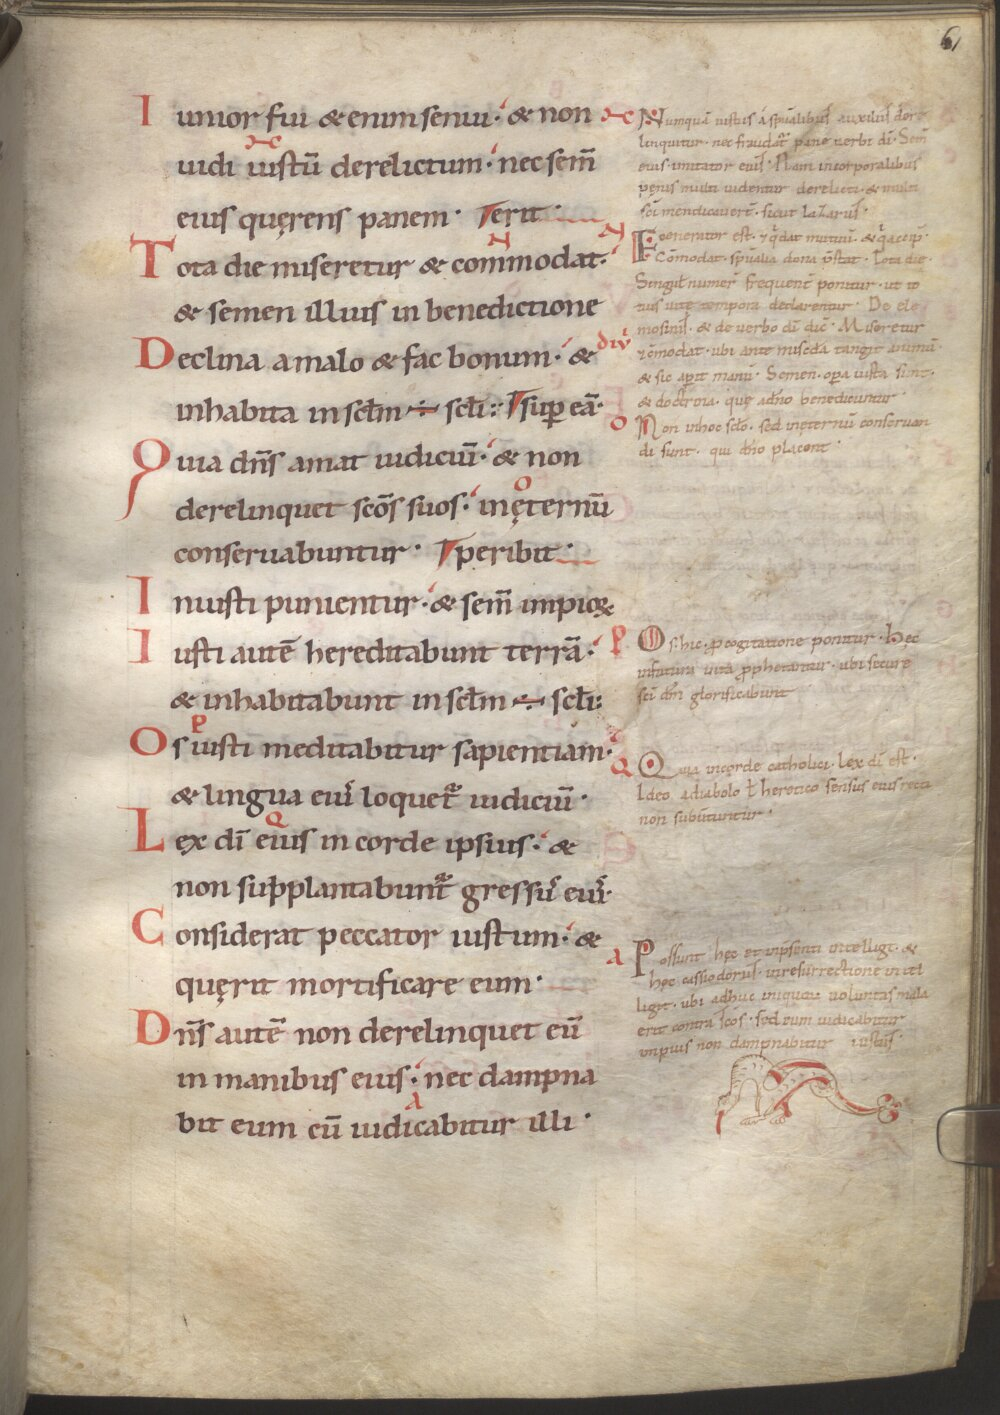 61
Iunior fui & enim senui · & non
uidi iustū derelictum · nec sem̄
eius quęrens panem · erit ·
Tota die miseretur & commodat ·
& semen illius in benedictione
Declina a malo & fac bonum · &
inhabita in sclm ÷ scli : sup eā ·
Quia dn̄s amat iudiciū · & non
derelinquet scōs suos · in ęternū
conseruabuntur · peribit ·
Iniusti punientur · & sem̄ impioꝝ
Iusti autē hereditabunt terrā ·
& inhabitabunt in sclm ÷ scli :
Os iusti meditabitur sapientiam ·
& lingua eiꝰ loquet᷑ iudiciū ·
Lex dī eius in corde ipsius · &
non supplantabunt᷑ gressꝰ eiꝰ ·
Considerat peccator iustum · &
quęrit mortificare eum ·
Dn̄s autē non derelinquet eū
in manibus eius · nec dampna
bit eum cū iudicabitur illi ·
Numquā iustus a spūalibus auxiliis dere
linquitur · nec fraudat᷑ pane uerbi dī · Sem̄
eius imitator eius · Nam in corporalibus
multi uidentur derelicti · & multi
sc̄i mendicauer̄t · sicut lazarus ·
Foenerator est ·
Cōmodat · spūalia dona
Singul numer̄ frequent̄ ponitur · ut to
tius uitę tempora declarentur · De ele
mosinis · & de uerbo dī dic̄ · Miseretur
& cōmodat · ubi ante tangit animū ·
& sic apit manū · Semen · opa iusta sunt ·
& doctrina · quę a dn̄o benedicuntur
Non in hoc sclo · sed in ęternū conseruan
di sunt · qui dn̄o placent ·
Os · hic · p cogitatione ponitur · Hęc
in futura uita pphetantur · ubi secure
sc̄i dn̄m glorificabunt
Quia in corde catholici · lex dī est ·
Ideo a diabolo ł heretico sensus eius recti
non subuertuntur ·
Possunt hęc et in psenti intelligi · &
hęc cassiodorus · in resurrectione intel
ligit · ubi adhuc iniquum uoluntas mala
erit contra sc̄os · sed cum iudicabitur
impius non dampnabitur iustus ·